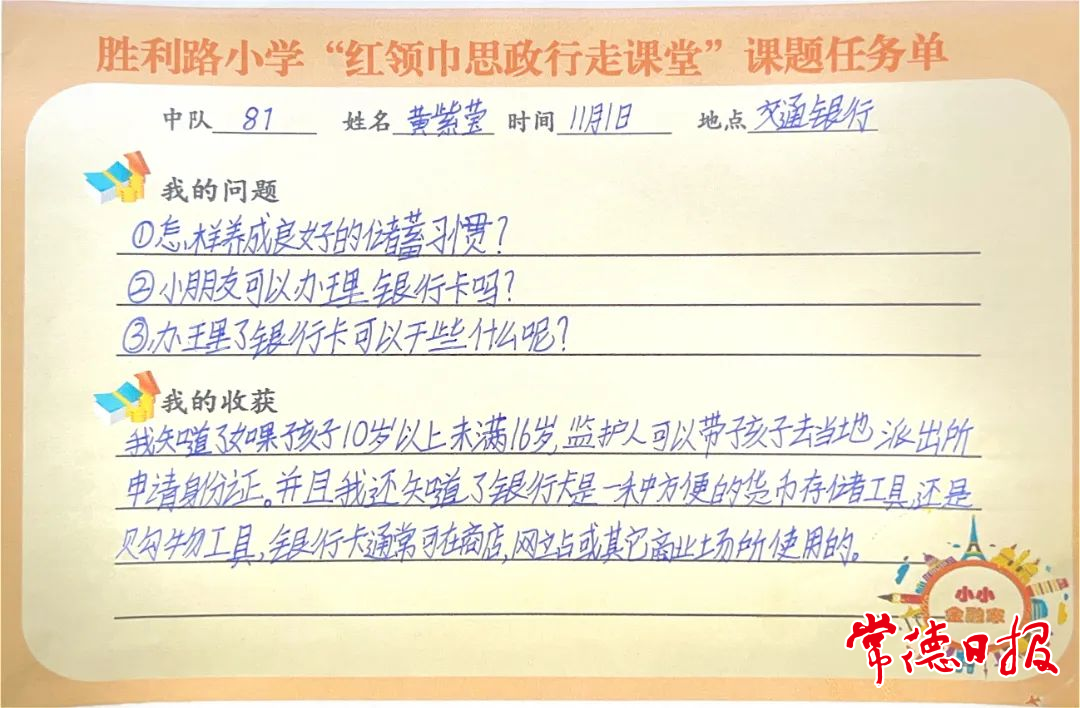 胜利路小学“红领巾思政行走课堂”课题任务单
中队 81 姓名 黄紫莹 时间 11月1日 地点 交通银行
我的问题
①怎样养成良好的储蓄习惯？
②小朋友可以办理银行卡吗？
③办理了银行卡可以干些什么呢？
我的收获
我知道了如果孩子10岁以上未满16岁,监护人可以带孩子去当地派出所
申请身份证。并且我还知道了银行卡是一种方便的货币存储工具,还是
购物工具,银行卡通常可在商店,网站或其它商业场所使用的。
小小
金融家
常德日报